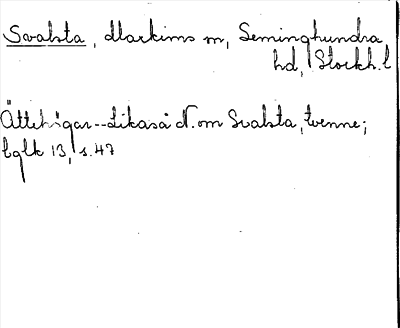 Svalsta, Markims sn, Seminghundra
hd, Stockh. l
Ättehögar--Likaså N. om Svalsta, tvenne;
bglk 13, s. 47